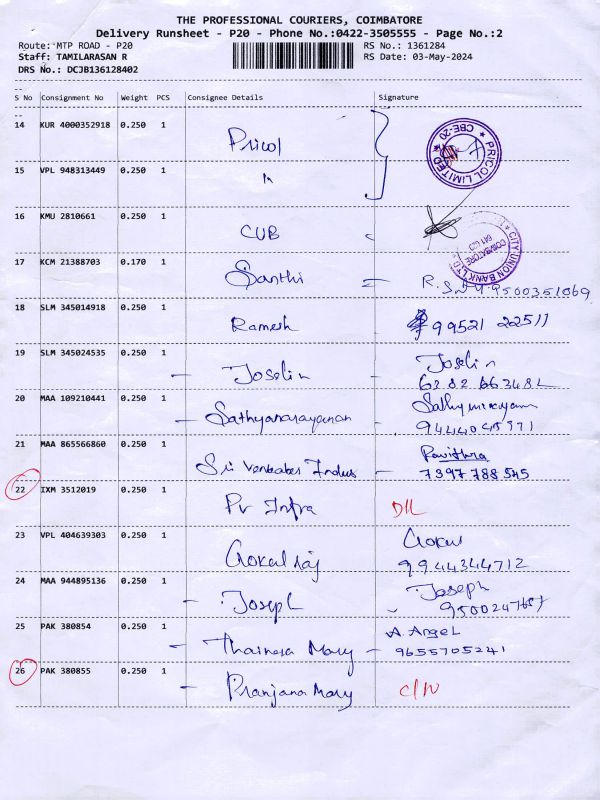 THE PROFESSIONAL COURIERS, COIMBATORE
Delivery Runsheet - P20 - Phone No.:0422-3505555 - Page No.:2
Route: MTP ROAD - P20 RS No.: 1361284
Staff: TAMILARASAN R RS Date: 03-May-2024
DRS No.: DCJB136128402
S No Consignment No Weight PCS Consignee Details Signature
14 KUR 4000352918 0.250 1 Pricol
PRICOL LIMITED CBE-20
15 VPL 948313449 0.250 1 "
16 KMU 2810661 0.250 1 CUB
CITY UNION BANK LTD COIMBATORE
17 KCM 21388703 0.170 1 Santhi = 9500351069
18 SLM 345014918 0.250 1 Ramesh 99521 22511
19 SLM 345024535 0.250 1 - Joselin Joselin
6382 663482
20 MAA 109210441 0.250 1 - Sathyanarayanan -
21 MAA 865566860 0.250 1 Sri Venkates Indus - Pavithra
7397788545
22 IXM 3512019 0.250 1 Pv Infra D/L
23 VPL 404639303 0.250 1 Gokul raj Gokul
9944344712
24 MAA 944895136 0.250 1 - Joseph Joseph
25 PAK 380854 0.250 1 - Thainesa Mary - A. Angel
9655705241
26 PAK 380855 0.250 1 - Pranjana Mary